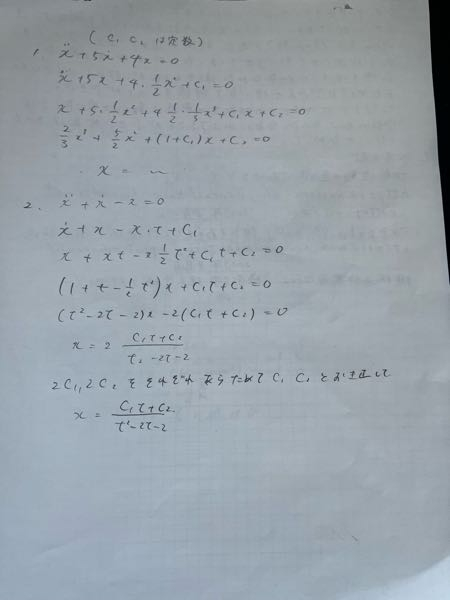 (C₁ C₂ は定数)
1. ẍ + 5ẋ + 4x = 0
ẋ + 5x + 4・1/2 x² + C₁ = 0
x + 5・1/2 x² + 4 1/2・1/3 x³ + C₁x + C₂ = 0
2/3 x³ + 5/2 x² + (1 + C₁)x + C₂ = 0
x = 〜
2. ẍ + ẋ - x = 0
ẋ + x - x・t + C₁
x + xt - x 1/2 t² + C₁t + C₂ = 0
(1 + t - 1/2 t²)x + C₁t + C₂ = 0
(t² - 2t - 2)x - 2(C₁t + C₂) = 0
x = 2 (C₁t + C₂)/(t₂ - 2t - 2)
2C₁, 2C₂ をそれぞれあらためて C₁ C₂ とおき直して
x = (C₁t + C₂)/(t² - 2t - 2)